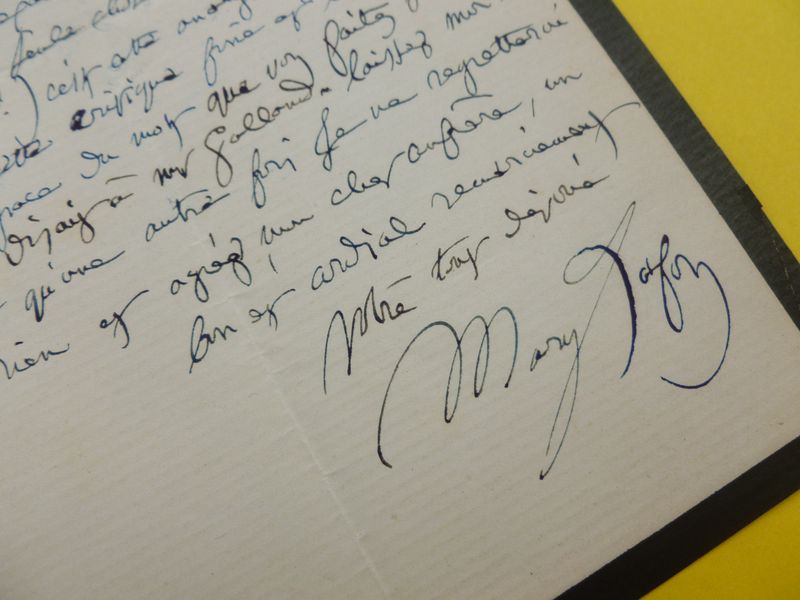 seule chose
c'est cette
cette critique fine et
grace du mot que vous faites
disais à mr Galland. laissez moi
qu'une autre fois Je ne regretterai
rien et agréez, mon cher confrère, un
bon et cordial remerciement
Votre tout dévoué
Mary Lafon